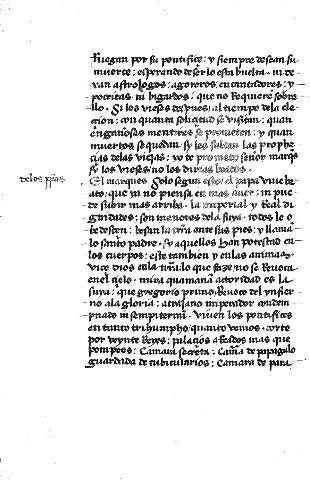 Ruegan por su pontifiçe: y siempre desean su
muerte: esperando deser lo esta buelta.
van astrologos: agoreros: encantadores: y
pocritas ni bigardos: que no Requiere sobre
llo. Si los vieses despues al tiempo dela ele
çion: con quanta soliçitud se visitan: quan
engañosas mentires se prometen: y quan
muertos se quedan. Sy les fablan las prophe
çias delas viejas: yo te prometo señor marqs
sy los vieses no los dirias beatos.
delos
El marques. Solo segun esso: el papa viue be
ato: que ya no piensa en mas auer: ni pue
de subir mas arriba. la imperial y Real di
gnidades: son menores dela suya. todos le o
bedesçen: besan la tierra ante sus pies: y llamā
lo santo padre. Sy aquellos han potestad en
los cuerpos: este tambien y enlas animas.
vice dios enla tierra lo que faze: no se Reuoca
enel çielo. mira quamaña actoridad es la
suya: que gregorio primo Reuoco del ynfier
no ala gloria: a traiano imperador conden
pnado in sempiternū. Viuen los pontifiçes
en tanto triumpho: quanto vemos. corte
por veynte Reyes: palaçios arreados mas que
pompeos: Camara secreta: Camara de papagalo
guardada de cubicularios: Camara de para